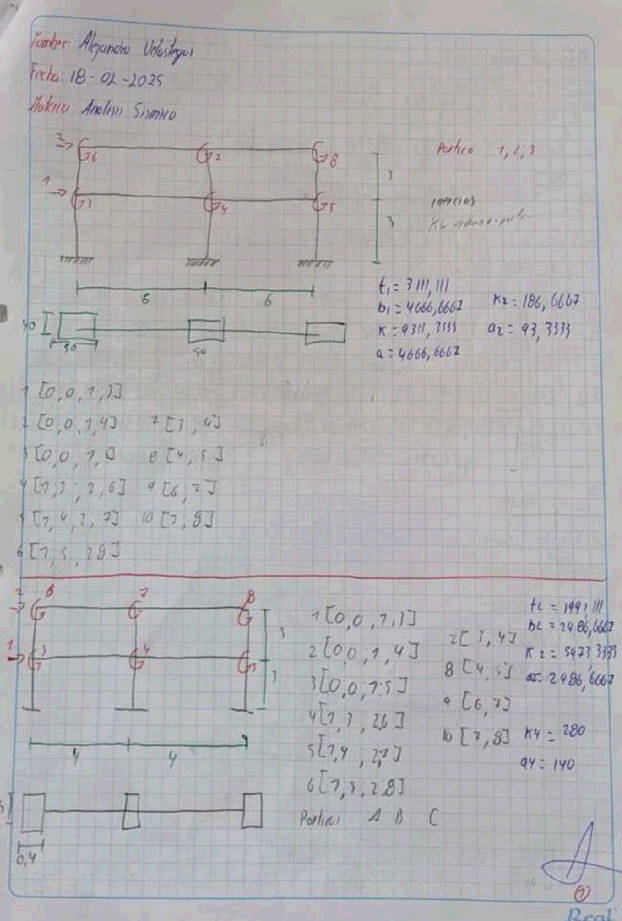 Nombre: Alejandro Velastegui
Fecha: 18-02-2025
Materia: Analisis Sismico
2 6 7 8
Portico 1, 2, 3
1 3 4 5
3
inercias
3
6 6
t1 = 3111,111
b1 = 4666,6667 K2 = 186,6667
K = 9333,3333 a2 = 93,3333
a = 4666,6667
40
50 50
1 [0,0,1,3]
2 [0,0,1,4] 7 [3,4]
3 [0,0,1,5] 8 [4,5]
4 [1,3,2,6] 9 [6,7]
5 [1,4,2,7] 10 [7,8]
6 [1,5,2,8]
2 6 7 8
1 3 4 5
3
3
4 4
1 [0,0,1,3]
2 [0,0,1,4] 7 [3,4]
3 [0,0,1,5] 8 [4,5]
4 [1,3,2,6] 9 [6,7]
5 [1,4,2,7] 10 [7,8]
6 [1,5,2,8]
t2 = 1991,111
b2 = 2986,6667
K2 = 5973,3333
a2 = 2986,6667
K4 = 280
a4 = 140
0,4
Portico: A B C
1